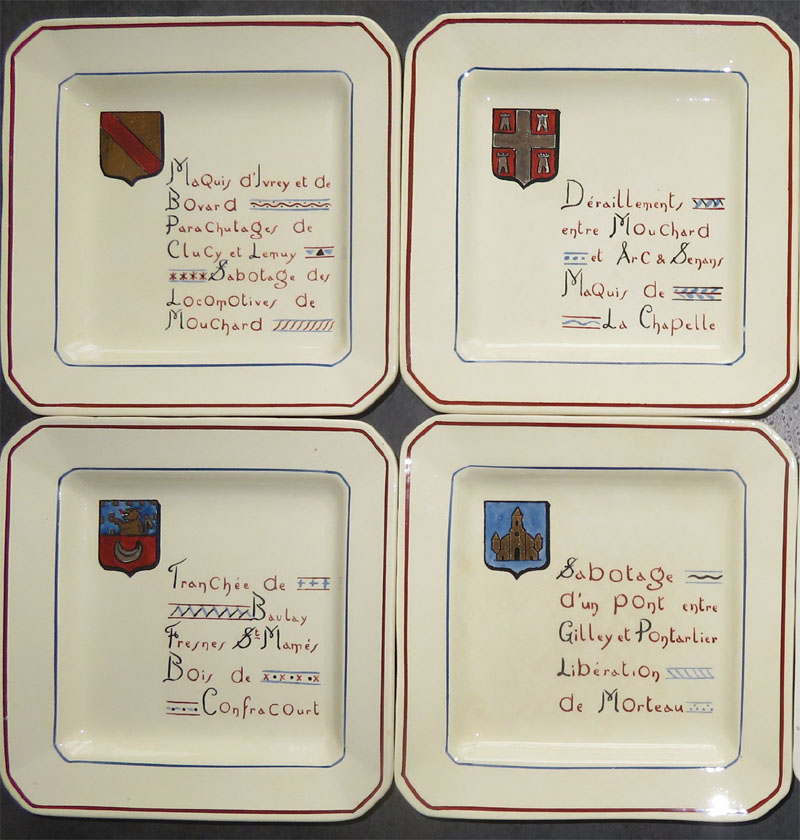 Maquis d'Ivrey et de
Bovard
Parachutages de
Clucy et Lemuy
Sabotage des
Locomotives de
Mouchard
Déraillements
entre Mouchard
et Arc & Senans
Maquis de
La Chapelle
Tranchée de
Baulay
Fresnes St Mamés
Bois de
Confracourt
Sabotage
d'un pont entre
Gilley et Pontarlier
Libération
de Morteau